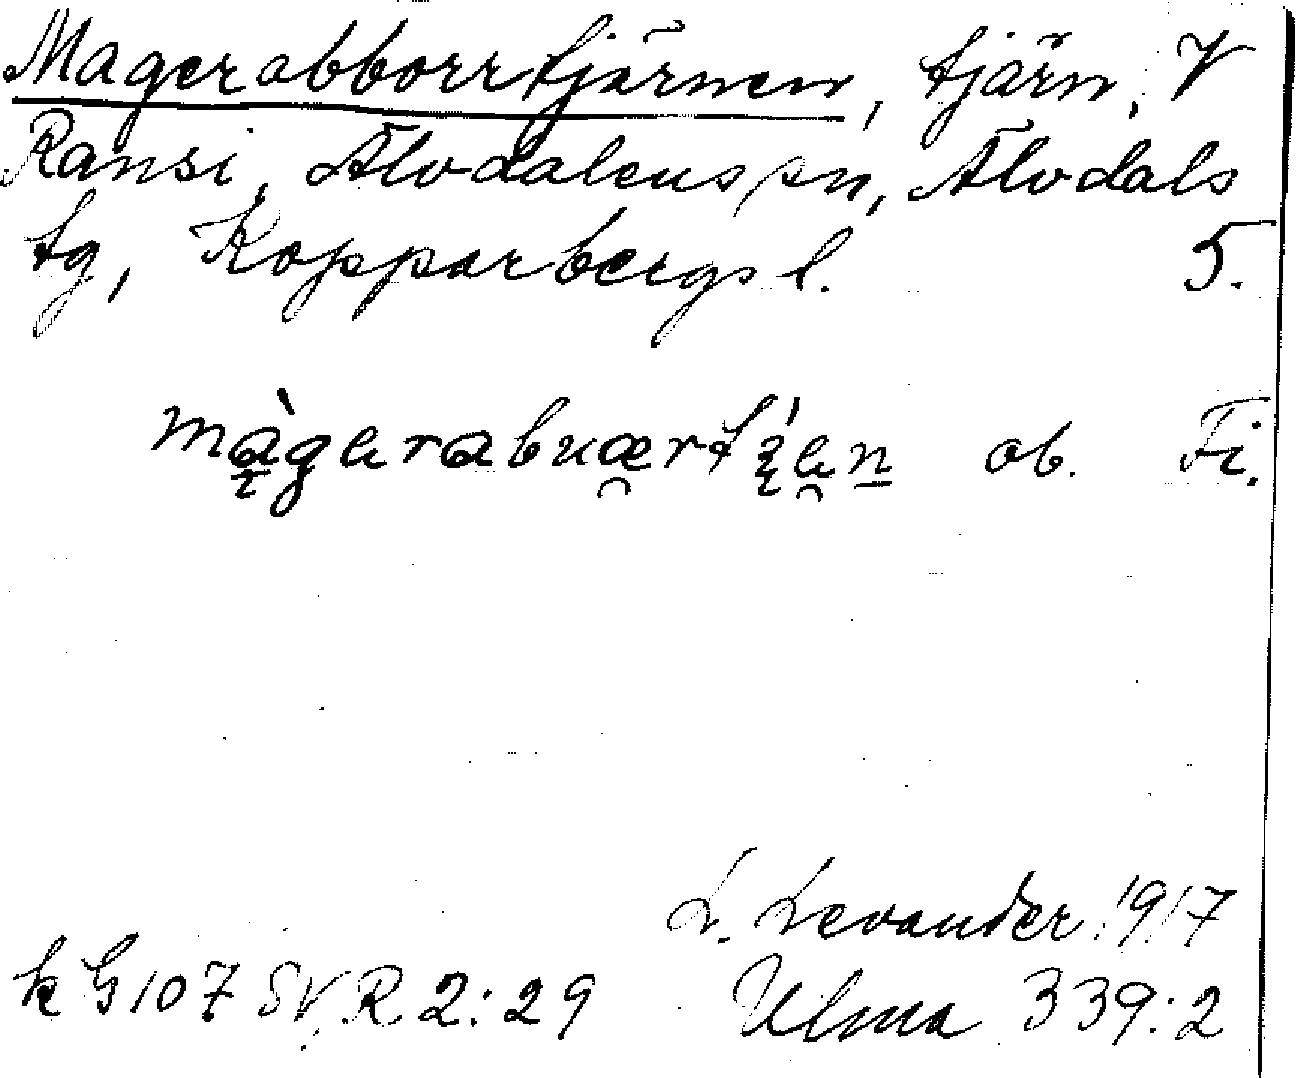 Magerabborrtjärnen, tjärn, V
Ransi, Älvdalens sn, Älvdals
tg, Kopparbergs l. 5.
ob. Fi.
L. Levander 1917
k G 107 SV. R 2:29 Ulma 339:2